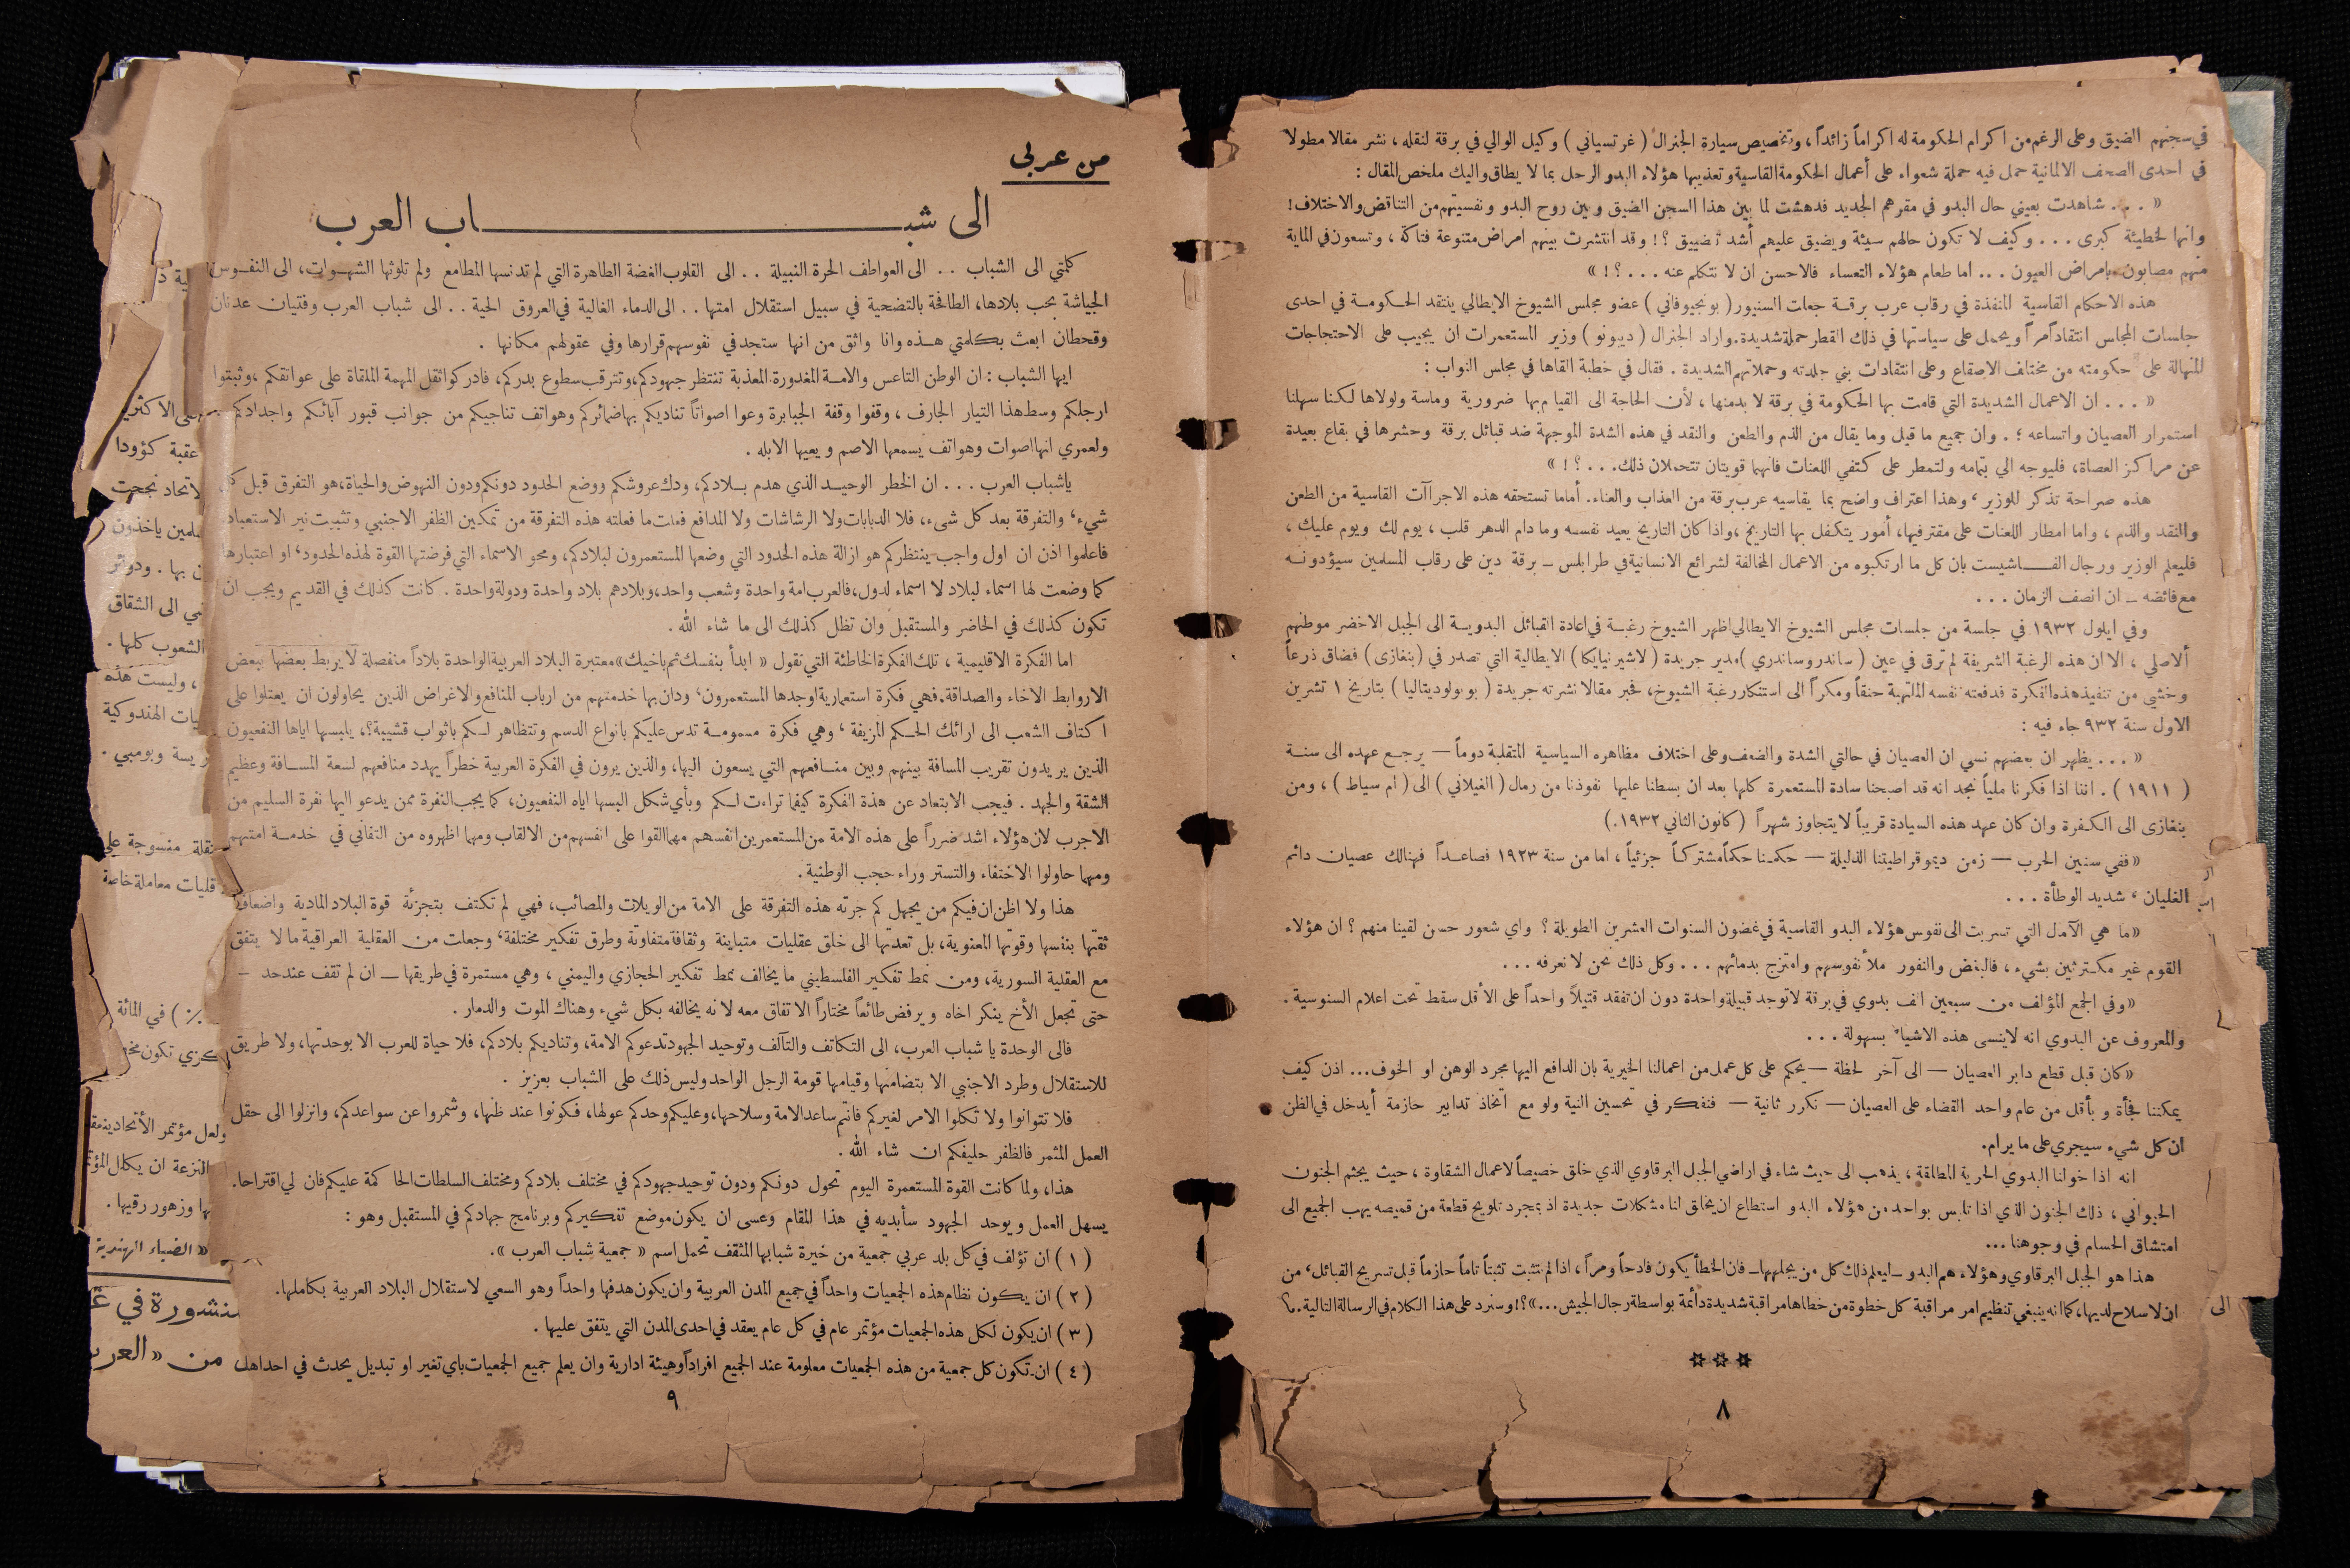 في سجنهم الضيق وعلى الرغم من اكرام الحكومة له اكراماً زائداً، وتخصيص سيارة الجنرال ( غرتسياني ) وكيل الوالي في برقة لنقله ، نشر مقالا مطولا
في احدى الصحف الالمانية حمل فيه حملة شعواء على أعمال الحكومة القاسية وتعذيبها هؤلاء البدو الرحل بما لا يطاق واليك ملخص المقال :
« . . . شاهدت بعيني حال البدو في مقرهم الجديد فدهشت لما بين هذا السجن الضيق وبين روح البدو ونفسيتهم من التناقض والاختلاف !
وانها لخطيئة كبرى . . . وكيف لا تكون حالهم سيئة ويضيق عليهم أشد تضييق ؟ ! وقد انتشرت بينهم امراض متنوعة فتاكة ، وتسعون في الماية
منهم مصابون بامراض العيون . . . اما طعام هؤلاء التعساء فالاحسن ان لا نتكلم عنه . . . ؟ ! »
هذه الاحكام القاسية المنفذة في رقاب عرب برقة جعلت السنيور ( بونجيوفاني ) عضو مجلس الشيوخ الايطالي ينتقد الحكومة في احدى
جلسات المجلس انتقاداً مراً ويحمل على سياستها في ذلك القطر حملة شديدة. واراد الجنرال ( ديبونو ) وزير المستعمرات ان يجيب على الاحتجاجات
المنهالة على حكومته من مختلف الاصقاع وعلى انتقادات بني جلدته وحملاتهم الشديدة . فقال في خطبة القاها في مجلس النواب :
« . . . ان الاعمال الشديدة التي قامت بها الحكومة في برقة لا بد منها ، لأن الحاجة الى القيام بها ضرورية وماسة ولولاها لكنا سهلنا
استمرار العصيان واتساعه ؛ . وان جميع ما قيل وما يقال من الذم والطعن والنقد في هذه الشدة الموجهة ضد قبائل برقة وحشرها في بقاع بعيدة
عن مراكز العصاة، فليوجه الي بتمامه ولتمطر على كتفي اللعنات فانهما قويتان تتحملان ذلك. . . ؟ ! »
هذه صراحة تذكر للوزير ، وهذا اعتراف واضح بما يقاسيه عرب برقة من العذاب والعناء. أما ما تستحقه هذه الاجراآت القاسية من الطعن
والنقد والذم ، واما امطار اللعنات على مقترفيها، أمور يتكفل بها التاريخ ، واذا كان التاريخ يعيد نفسه وما دام الدهر قلب ، يوم لك ويوم عليك ،
فليعلم الوزير ورجال الفــاشيست بان كل ما ارتكبوه من الاعمال المخالفة لشرائع الانسانية في طرابلس ــ برقة دين على رقاب المسلمين سيؤدونه
مع فائضه ــ ان انصف الزمان . . .
وفي ايلول ١٩٣٢ في جلسة من جلسات مجلس الشيوخ الايطالي اظهر الشيوخ رغبة في اعادة القبائل البدوية الى الجبل الاخضر موطنهم
ألاصلي ، الا ان هذه الرغبة الشريفة لم ترق في عين ( ساندرو ساندري ) مدير جريدة ( لاشيرنيايكا ) الايطالية التي تصدر في ( بنغازى ) فضاق ذرعاً
وخشي من تنفيذ هذه الفكرة فدفعته نفسه الملتهبة حنقاً ومكراً الى استنكار رغبة الشيوخ، فحبر مقالا نشرته جريدة ( بوبولوديتاليا ) بتاريخ ١ تشرين
الاول سنة ٩٣٢ جاء فيه :
« . . . يظهر ان بعضهم نسي ان العصيان في حالتي الشدة والضعف وعلى اختلاف مظاهره السياسية المتقلبة دوماً — يرجع عهده الى سنة
( ١٩١١ ) . اننا اذا فكرنا ملياً نجد انه قد اصبحنا سادة المستعمرة كلها بعد ان بسطنا عليها نفوذنا من رمال ( الغيلاني ) الى ( ام سياط ) ، ومن
بنغازى الى الكفرة وان كان عهد هذه السيادة قريباً لا يتجاوز شهراً ( كانون الثاني ١٩٣٢.)
« ففي سنين الحرب — زمن ديموقراطيتنا الذليلة — حكمنا حكماً مشتركاً جزئياً ، اما من سنة ١٩٢٣ فصاعداً فهنالك عصيان دائم
الغليان ، شديد الوطأة . . .
« ما هي الآمال التي تسربت الى نفوس هؤلاء البدو القاسية في غضون السنوات العشرين الطويلة ؟ واي شعور حسن لقينا منهم ؟ ان هؤلاء
القوم غير مكترثين بشيء ، فالبغض والنفور ملأ نفوسهم وامتزج بدمائهم . . . وكل ذلك نحن لا نعرفه . . .
« وفي الجمع المؤلف من سبعين الف بدوي في برقة لا توجد قبيلة واحدة دون ان تفقد قتيلاً واحداً على الأقل سقط تحت اعلام السنوسية .
والمعروف عن البدوي انه لا ينسى هذه الاشياء بسهولة . . .
« كان قبل قطع دابر العصيان — الى آخر لحظة — يحكم على كل عمل من اعمالنا الخيرية بان الدافع اليها مجرد الوهن او الخوف... اذن كيف
يمكننا فجأة و بأقل من عام واحد القضاء على العصيان — نكرر ثانية — فنفكر في تحسين النية ولو مع اتخاذ تدابير حازمة أيدخل في الظن
ان كل شيء سيجري على ما يرام.
انه اذا خولنا البدوي الحرية المطلقة ، يذهب الى حيث شاء في اراضي الجبل البرقاوي الذي خلق خصيصاً لاعمال الشقاوة ، حيث يجثم الجنون
الحيواني ، ذلك الجنون الذي اذا تلبس بواحد من هؤلاء البدو استطاع ان يخلق لنا مشكلات جديدة اذ بمجرد تلويح قطعة من قميصه يهب الجميع الى
امتشاق الحسام في وجوهنا ...
هذا هو الجبل البرقاوي وهؤلاء هم البدو ــ ليعلم ذلك كل من يجهلهم ــ فان الخطأ يكون فادحاً ومراً ، اذا لم نتثبت تثبتاً تاماً حازماً قبل تسريح القبائل ، من
ان لا سلاح لديها، كما انه ينبغي تنظيم امر مراقبة كل خطوة من خطاها مراقبة شديدة دائمة بواسطة رجال الجيش ...» ؟! وسنرد على هذا الكلام في الرسالة التالية..
الى
٨
من عربى
الى شبــــاب العرب
كلمتي الى الشباب . . الى العواطف الحرة النبيلة . . الى القلوب الغضة الطاهرة التي لم تدنسها المطامع ولم تلوثها الشهوات، الى النفوس
الجياشة بحب بلادها، الطافحة بالتضحية في سبيل استقلال امتها . . الى الدماء الغالية في العروق الحية . . الى شباب العرب وفتيان عدنان
وقحطان ابعث بكلمتي هذه وانا واثق من انها ستجد في نفوسهم قرارها وفي عقولهم مكانها .
ايها الشباب : ان الوطن التاعس والامة المغدورة المعذبة تنتظر جهودكم، وتترقب سطوع بدركم، فادركوا ثقل المهمة الملقاة على عواتقكم ، وثبتوا
ارجلكم وسط هذا التيار الجارف ، وقفوا وقفة الجبابرة وعوا اصواتاً تناديكم بها ضمائركم وهواتف تناجيكم من جوانب قبور آبائكم واجدادكم
ولعمري انها اصوات وهواتف يسمعها الاصم ويعيها الابله .
ياشباب العرب . . . ان الخطر الوحيد الذي هدم بلادكم، ودك عروشكم ووضع الحدود دونكم ودون النهوض والحياة، هو التفرق قبل كل
شيء ، والتفرقة بعد كل شيء، فلا الدبابات ولا الرشاشات ولا المدافع فعلت ما فعلته هذه التفرقة من تمكين الظفر الاجنبي وتثبيت نير الاستعباد
فاعلموا اذن ان اول واجب ينتظركم هو ازالة هذه الحدود التي وضعها المستعمرون لبلادكم، ومحو الاسماء التي فرضتها القوة لهذه الحدود ، او اعتبارها
كما وضعت لها اسماء لبلاد لا اسماء لدول، فالعرب امة واحدة وشعب واحد، وبلادهم بلاد واحدة ودولة واحدة . كانت كذلك في القديم ويجب ان
تكون كذلك في الحاضر والمستقبل وان تظل كذلك الى ما شاء الله .
اما الفكرة الاقليمية ، تلك الفكرة الخاطئة التي تقول « ابدأ بنفسك ثم باخيك » معتبرة البلاد العربية الواحدة بلاداً منفصلة لا يربط بعضها ببعض
الا روابط الاخاء والصداقة. فهي فكرة استعمارية اوجدها المستعمرون ، ودان بها خدمتهم من ارباب المنافع والاغراض الذين يحاولون ان يعتلوا على
اكتاف الشعب الى ارائك الحكم المزيفة ، وهي فكرة مسمومة تدس عليكم بانواع الدسم وتتظاهر لكم باثواب قشيبة ؟، يلبسها اياها النفعيون
الذين يريدون تقريب المسافة بينهم وبين منافعهم التي يسعون اليها، والذين يرون في الفكرة العربية خطراً يهدد منافعهم لسعة المسافة وعظيم
الشقة والجهد . فيجب الابتعاد عن هذة الفكرة كيفما تراءت لكم وبأي شكل البسها اياه النفعيون، كما يجب النفرة ممن يدعو اليها نفرة السليم من
الاجرب لان هؤلاء اشد ضرراً على هذه الامة من المستعمرين انفسهم مهما القوا على انفسهم من الالقاب ومهما اظهروه من التفاني في خدمة امتهم
ومهما حاولوا الاختفاء والتستر وراء حجب الوطنية .
هذا ولا اظن ان فيكم من يجهل كم جرته هذه التفرقة على الامة من الويلات والمصائب، فهي لم تكتف بتجزئة قوة البلاد المادية واضعاف
ثقتها بنفسها وقوتها المعنوية، بل تعدتها الى خلق عقليات متباينة وثقافة متفاوتة وطرق تفكير مختلفة ، وجعلت من العقلية العراقية ما لا يتفق
مع العقلية السورية، ومن نمط تفكير الفلسطيني ما يخالف نمط تفكير الحجازي واليمني ، وهي مستمرة في طريقها ــ ان لم تقف عند حد ــ
حتى تجعل الأخ ينكر اخاه ويرفض طائعاً مختاراً الاتفاق معه لانه يخالفه بكل شيء وهناك الموت والدمار .
فالى الوحدة يا شباب العرب، الى التكاتف والتآلف وتوحيد الجهود تدعوكم الامة، وتناديكم بلادكم، فلا حياة للعرب الا بوحدتها، ولا طريق
للاستقلال وطرد الاجنبي الا بتضامنها وقيامها قومة الرجل الواحد وليس ذلك على الشباب بعزيز .
فلا تتوانوا ولا تكلوا الامر لغيركم فانتم ساعد الامة وسلاحها، وعليكم وحدكم عولها، فكونوا عند ظنها، وشمروا عن سواعدكم، وانزلوا الى حقل
العمل المثمر فالظفر حليفكم ان شاء الله .
هذا، ولما كانت القوة المستعمرة اليوم تحول دونكم ودون توحيد جهودكم في مختلف بلادكم ومختلف السلطات الحاكمة عليكم فان لي اقتراحا.
يسهل العمل ويوحد الجهود سأبديه في هذا المقام وعسى ان يكون موضع تفكيركم وبرنامج جهادكم في المستقبل وهو :
( ١ ) ان تؤلف في كل بلد عربي جمعية من خيرة شبابها المثقف تحمل اسم « جمعية شباب العرب ».
( ٢ ) ان يكون نظام هذه الجمعيات واحداً في جميع المدن العربية وان يكون هدفها واحداً وهو السعي لاستقلال البلاد العربية بكاملها.
( ٣ ) ان يكون لكل هذه الجمعيات مؤتمر عام في كل عام يعقد في احدى المدن التي يتفق عليها .
( ٤ ) ان تكون كل جمعية من هذه الجمعيات معلومة عند الجميع افراداً وهيئة ادارية وان يعلم جميع الجمعيات باي تغير او تبديل يحدث في احداها
٩
الاكثرية
عقبة كؤودا
لاتحاد نجحت
ياخذون
بها . ودوائر
الى الشقاق
الشعوب كلها .
، وليست هذه
الهندوكية
وبومبي .
منسوجة على
قليات معاملة خاصة
٪ ) في المائة
تكون
ولعل مؤتمر
النزعة ان
وزهور رقيها .
« الضياء الهندية
منشورة في
من « العرب